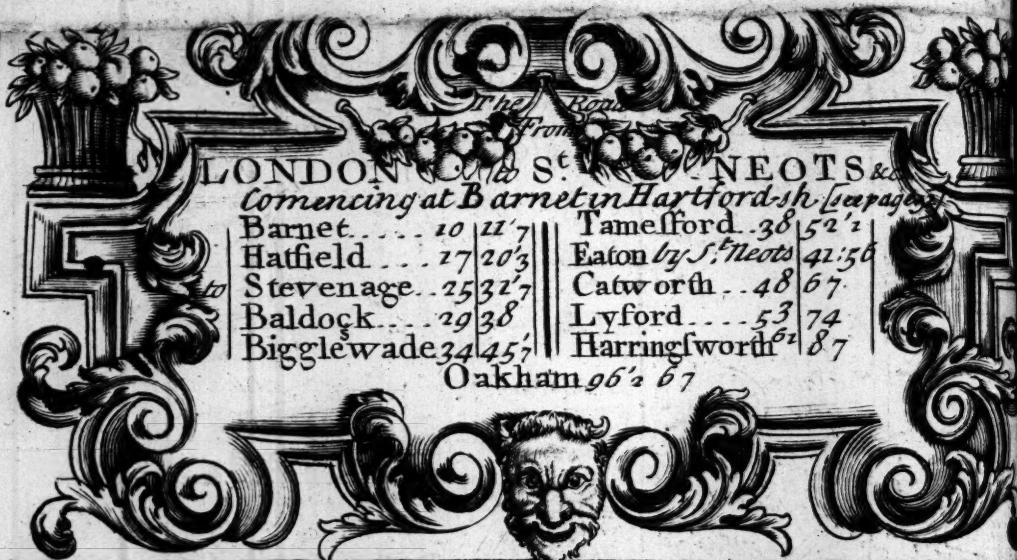 The Road
From
LONDON to St. NEOTS &c
Comencing at Barnet in Hartford-sh. [see page
to
Barnet..... 10 11'7
Hatfield.... 17 20'3
Stevenage.. 25 31'7
Baldock.... 29 38
Bigglewade 34 45'7
Tameſford.. 38 52'2
Eaton by St. Neots 42:56
Catworth.. 48 67
Lyford.... 53 74
Harringſworth 62 87
Oakham 96'2 67